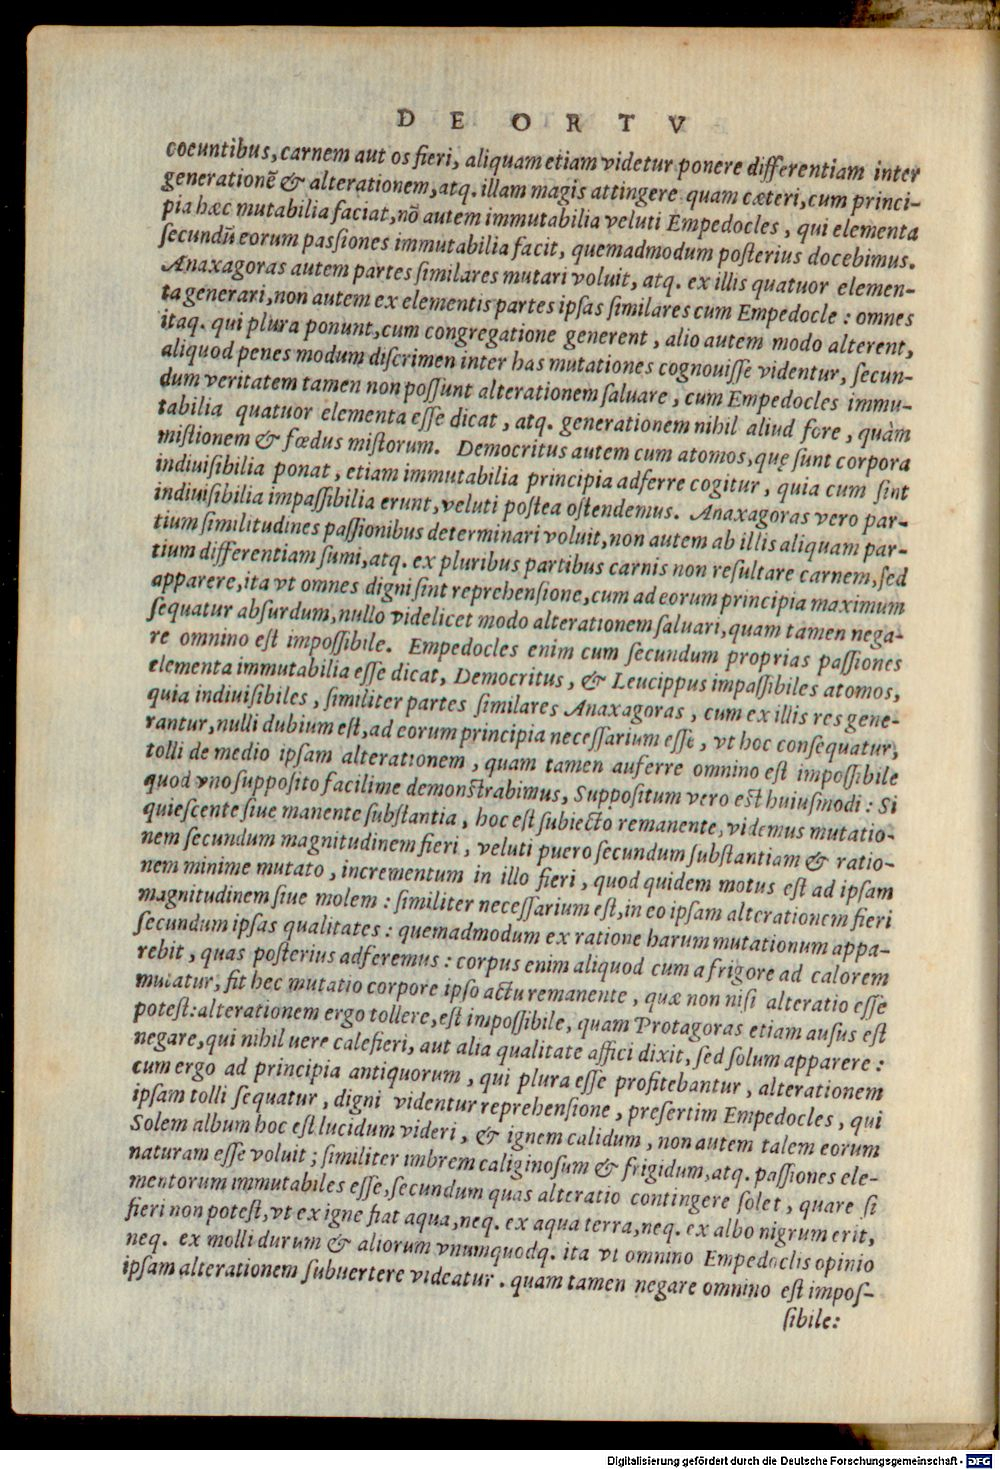 DE ORTV
coeuntibus, carnem aut os fieri, aliquam etiam videtur ponere differentiam inter
generationẽ & alterationem, atq. illam magis attingere quam cæteri, cum princi-
pia hæc mutabilia faciat, nõ autem immutabilia veluti Empedocles, qui elementa
ſecundũ eorum paſsiones immutabilia facit, quemadmodum poſterius docebimus.
Anaxagoras autem partes ſimilares mutari voluit, atq. ex illis quatuor elemen-
ta generari, non autem ex elementis partes ipſas ſimilares cum Empedocle: omnes
itaq. qui plura ponunt, cum congregatione generent, alio autem modo alterent,
aliquod penes modum diſcrimen inter has mutationes cognouiſſe videntur, ſecun-
dum veritatem tamen non poſſunt alterationem ſaluare, cum Empedocles immu-
tabilia quatuor elementa eſſe dicat, atq. generationem nihil aliud fore, quàm
miſtionem & fœdus miſtorum. Democritus autem cum atomos, quę ſunt corpora
indiuiſibilia ponat, etiam immutabilia principia adferre cogitur, quia cum ſint
indiuiſibilia impaſſibilia erunt, veluti poſtea oſtendemus. Anaxagoras vero par-
tium ſimilitudines paſſionibus determinari voluit, non autem ab illis aliquam par-
tium differentiam ſumi, atq. ex pluribus partibus carnis non reſultare carnem, ſed
apparere, ita vt omnes digni ſint reprehenſione, cum ad eorum principia maximum
ſequatur abſurdum, nullo videlicet modo alterationem ſaluari, quam tamen nega-
re omnino eſt impoſſibile. Empedocles enim cum ſecundum proprias paſſiones
elementa immutabilia eſſe dicat, Democritus, & Leucippus impaſſibiles atomos,
quia indiuiſibiles, ſimiliter partes ſimilares Anaxagoras, cum ex illis res gene-
rantur, nulli dubium eſt, ad eorum principia neceſſarium eſſe, vt hoc conſequatur,
tolli de medio ipſam alterationem, quam tamen auferre omnino eſt impoſſibile
quod vno ſuppoſito facilime demonſtrabimus, Suppoſitum vero eſt huiuſmodi: Si
quieſcente ſiue manente ſubſtantia, hoc eſt ſubiecto remanente, videmus mutatio-
nem ſecundum magnitudinem fieri, veluti puero ſecundum ſubſtantiam & ratio-
nem minime mutato, incrementum in illo fieri, quod quidem motus eſt ad ipſam
magnitudinem ſiue molem: ſimiliter neceſſarium eſt, in eo ipſam alterationem fieri
ſecundum ipſas qualitates: quemadmodum ex ratione harum mutationum appa-
rebit, quas poſterius adferemus: corpus enim aliquod cum a frigore ad calorem
mutatur, fit hec mutatio corpore ipſo actu remanente, quæ non niſi alteratio eſſe
poteſt: alterationem ergo tollere, eſt impoſſibile, quam Protagoras etiam auſus eſt
negare, qui nihil uere calefieri, aut alia qualitate affici dixit, ſed ſolum apparere:
cum ergo ad principia antiquorum, qui plura eſſe profitebantur, alterationem
ipſam tolli ſequatur, digni videntur reprehenſione, preſertim Empedocles, qui
Solem album hoc eſt lucidum videri, & ignem calidum, non autem talem eorum
naturam eſſe voluit; ſimiliter imbrem caliginoſum & frigidum, atq. paſſiones ele-
mentorum immutabiles eſſe, ſecundum quas alteratio contingere ſolet, quare ſi
fieri non poteſt, vt ex igne fiat aqua, neq. ex aqua terra, neq. ex albo nigrum erit,
neq. ex molli durum & aliorum vnumquodq. ita vt omnino Empedoclis opinio
ipſam alterationem ſubuertere videatur. quam tamen negare omnino eſt impoſ-
ſibile:
Digitalisierung gefördert durch die Deutsche Forschungsgemeinschaft - DFG